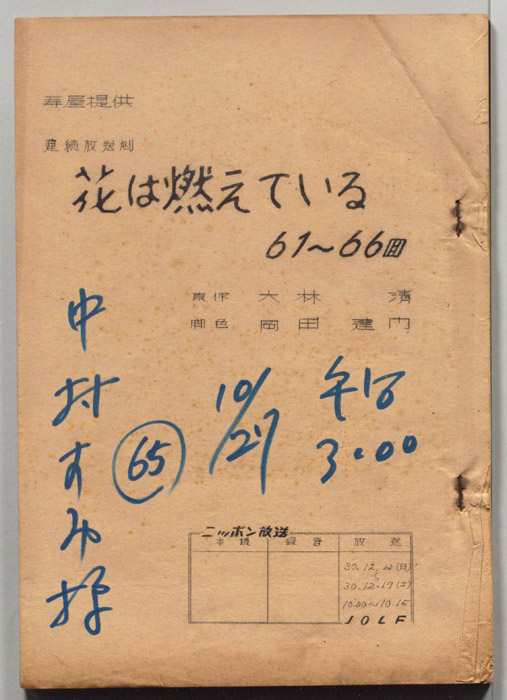 寿屋提供
連続放送劇
花は燃えている
61〜66回
原作 大林 清
脚色 岡田建内
中村すみ様
65
10/27
午后
3.00
ニッポン放送
準備 録音 放送
30.12.12(月)
〜
30.12.17(土)
10:00〜10.15
JOLF